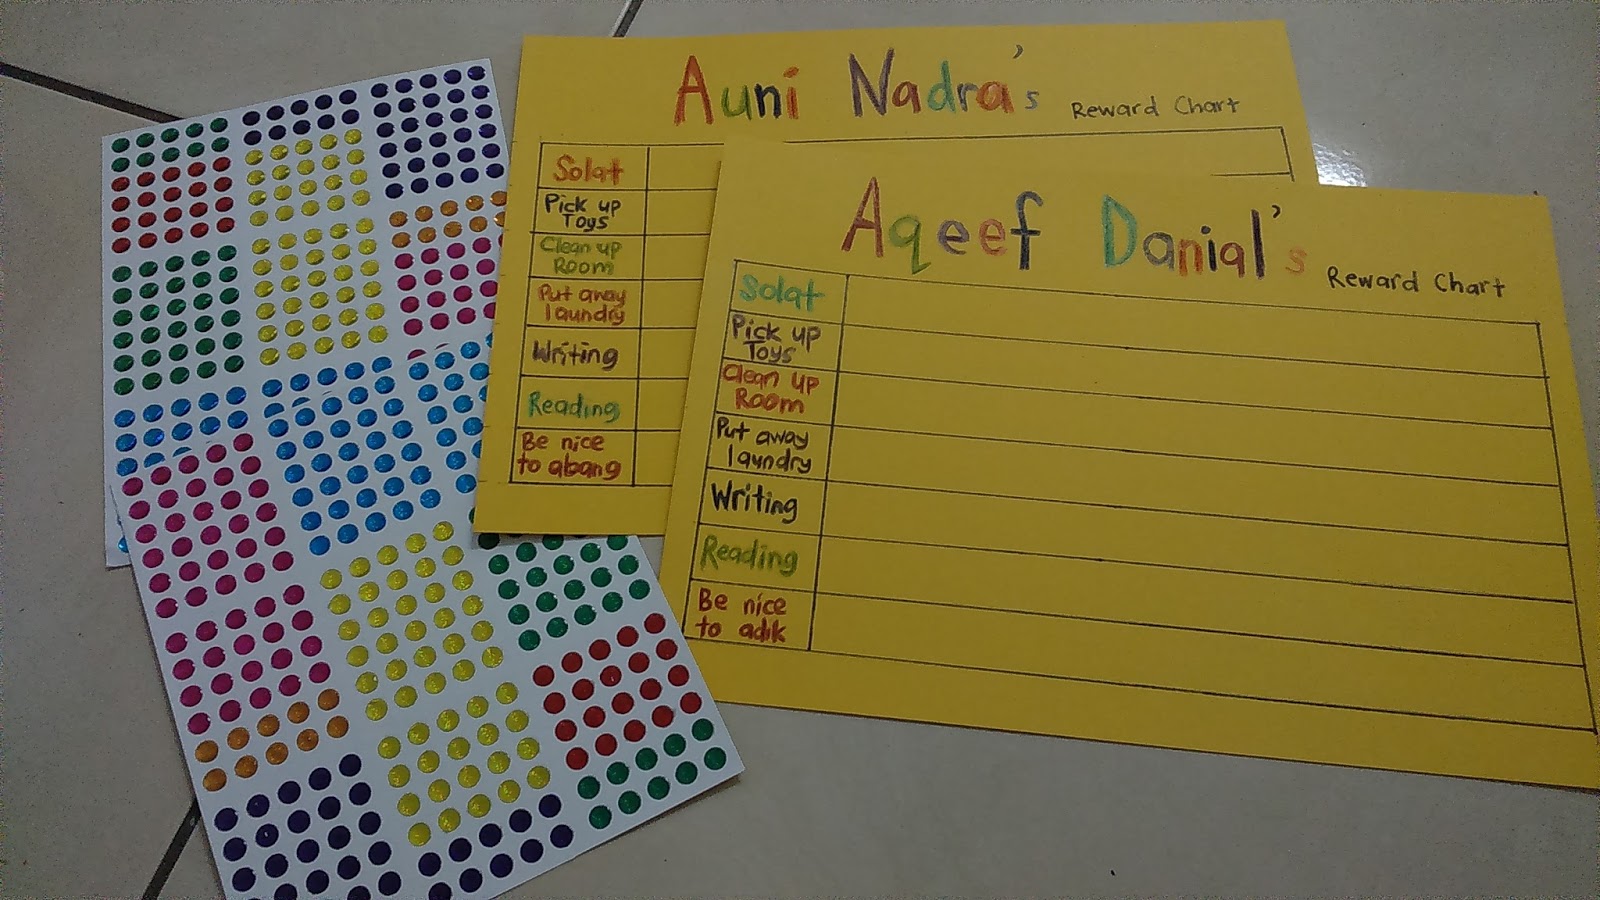 Auni Nadra's Reward Chart
Solat
Pick up
Toys
Clean up
Room
Put away
laundry
Writing
Reading
Be nice
to abang
Aqeef Danial's Reward Chart
Solat
Pick up
Toys
Clean up
Room
Put away
laundry
Writing
Reading
Be nice
to adik